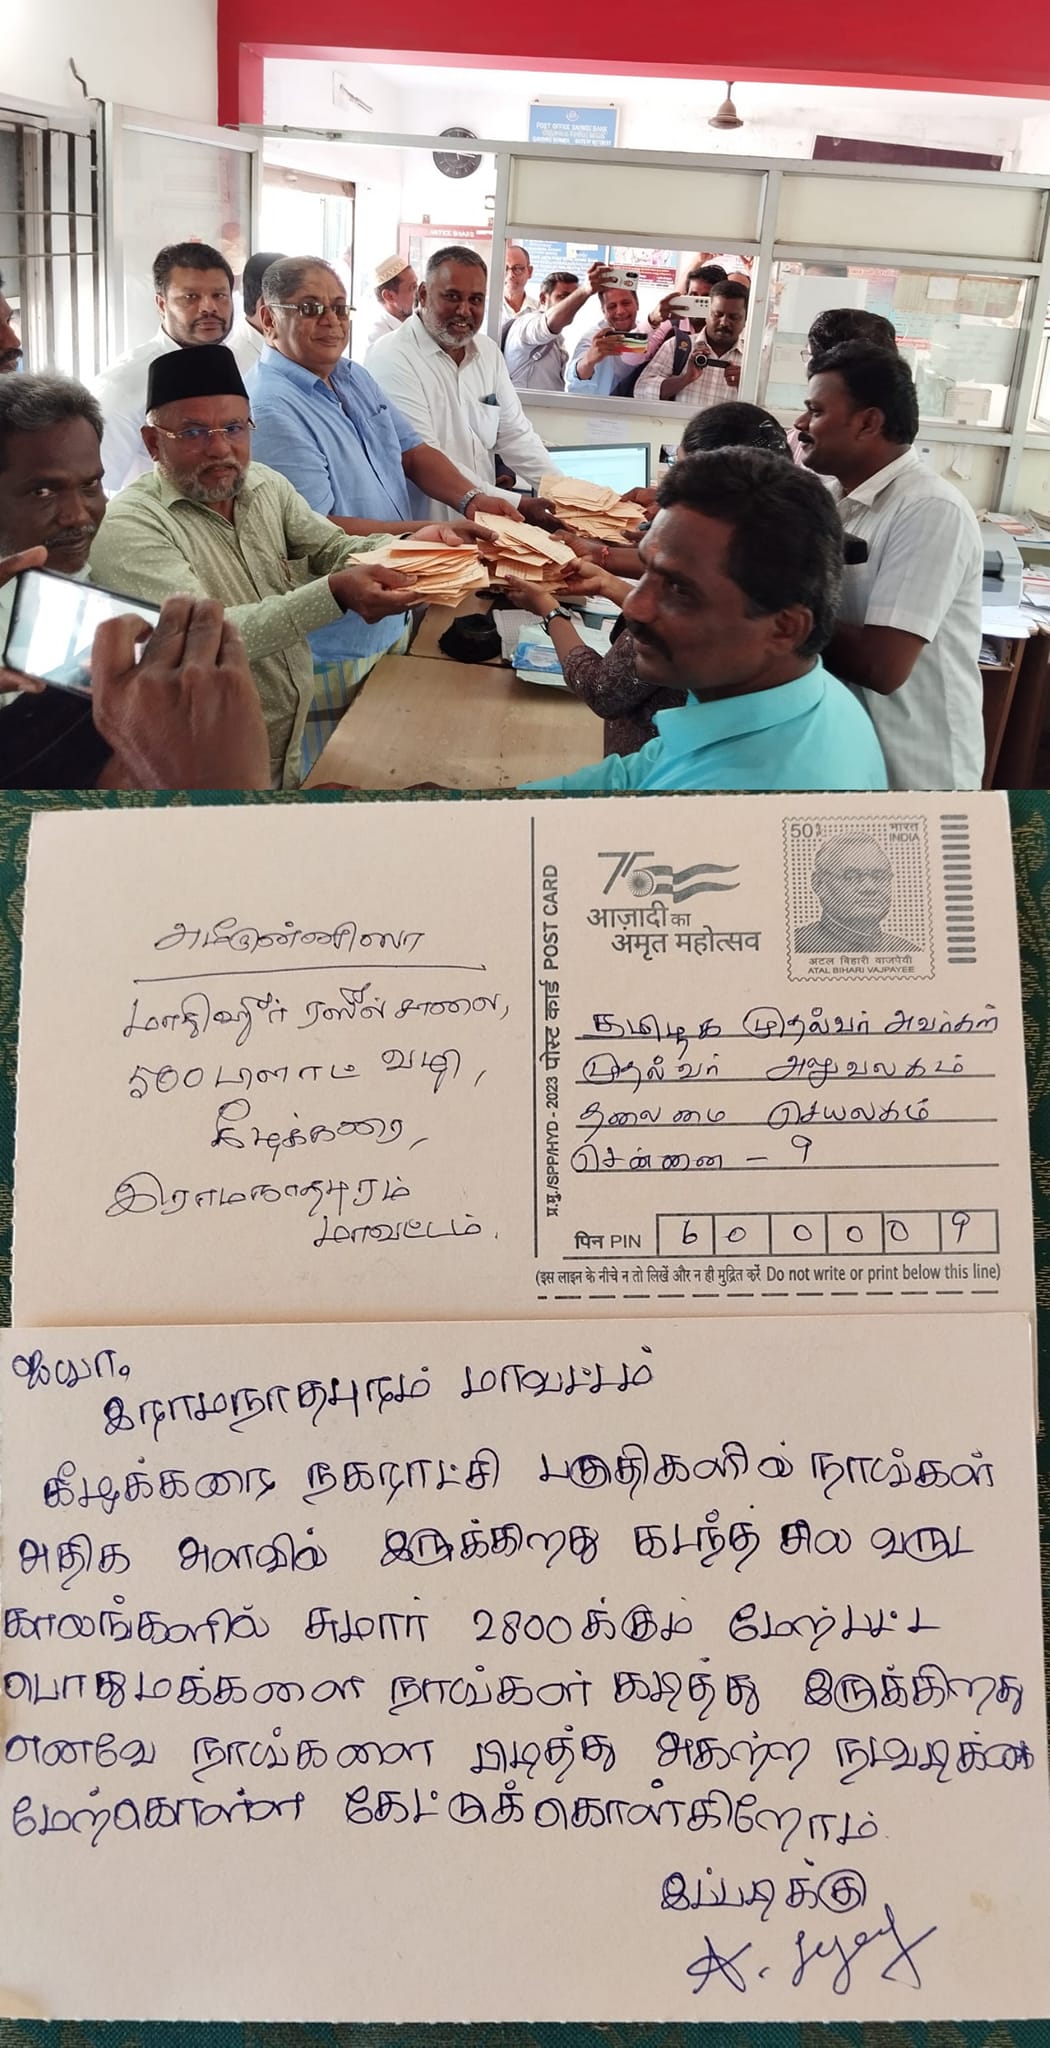 POST OFFICE SAVINGS BANK
NOTICE BOARD
அமீருன்னிஸா
மாதிஹூர் ரஸீல் சாலை,
500 பிளாட் வழி,
கீழக்கரை,
இராமநாதபுரம்
மாவட்டம்.
प्र.मु./SPP/HYD - 2023 पोस्ट कार्ड POST CARD
75
आज़ादी का
अमृत महोत्सव
50
भारत
INDIA
अटल बिहारी वाजपेयी
ATAL BIHARI VAJPAYEE
தமிழக முதல்வர் அவர்கள்
முதல்வர் அலுவலகம்
தலைமை செயலகம்
சென்னை - 9
पिन PIN 600009
(इस लाइन के नीचे न तो लिखें और न ही मुद्रित करें Do not write or print below this line)
ஐயா,
இராமநாதபுரம் மாவட்டம்
கீழக்கரை நகராட்சி பகுதிகளில் நாய்கள்
அதிக அளவில் இருக்கிறது கடந்த சில வருட
காலங்களில் சுமார் 2800க்கும் மேற்பட்ட
பொதுமக்களை நாய்கள் கடித்து இருக்கிறது
எனவே நாய்களை பிடித்து அகற்ற நடவடிக்கை
மேற்கொள்ள கேட்டுக்கொள்கிறோம்.
இப்படிக்கு